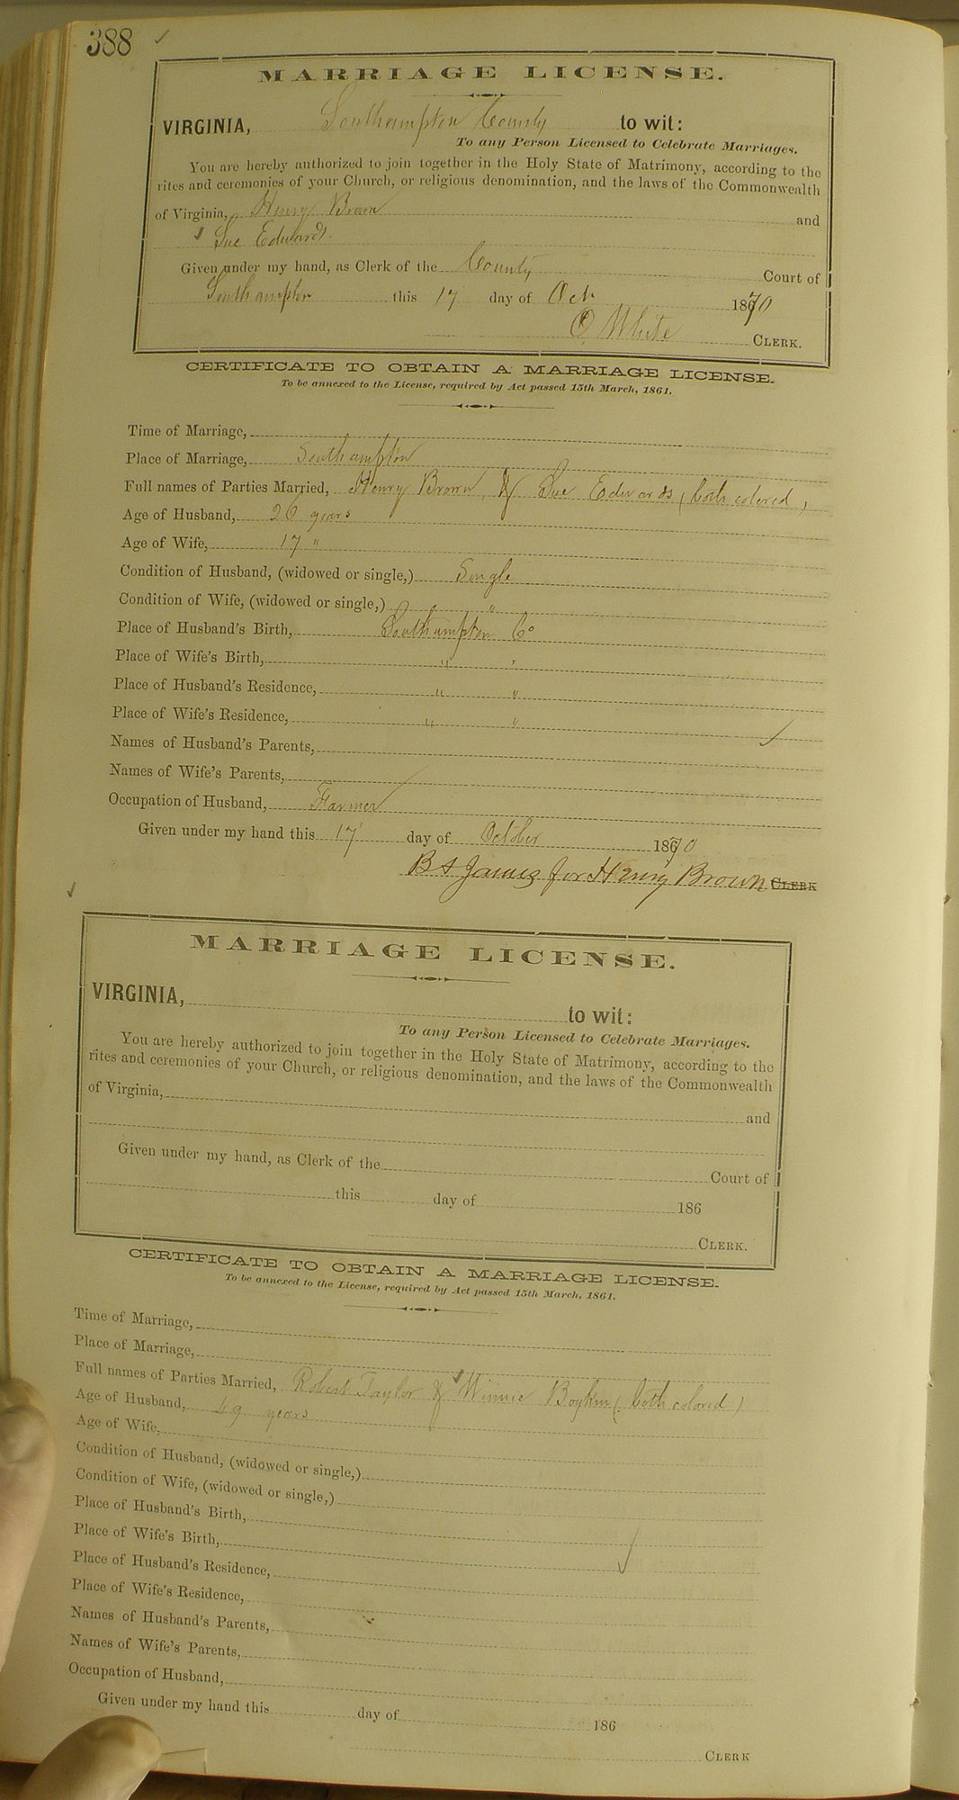 388
MARRIAGE LICENSE.
VIRGINIA, Southampton County to wit:
To any Person Licensed to Celebrate Marriages.
You are hereby authorized to join together in the Holy State of Matrimony, according to the
rites and ceremonies of your Church, or religious denomination, and the laws of the Commonwealth
of Virginia, Henry Brown and
Sue Edwards.
Given under my hand, as Clerk of the County Court of
Southampton this 17 day of Oct 1870
White CLERK.
CERTIFICATE TO OBTAIN A MARRIAGE LICENSE.
To be annexed to the License, required by Act passed 15th March, 1861.
Time of Marriage,
Place of Marriage, Southampton
Full names of Parties Married, Henry Brown & Sue Edwards (both colored)
Age of Husband, 26 years
Age of Wife, 17 "
Condition of Husband, (widowed or single,) Single
Condition of Wife, (widowed or single,) "
Place of Husband's Birth, Southampton Co
Place of Wife's Birth, " "
Place of Husband's Residence, " "
Place of Wife's Residence, " "
Names of Husband's Parents,
Names of Wife's Parents,
Occupation of Husband, Farmer
Given under my hand this 17 day of October 1870
B S James for Henry Brown CLERK
MARRIAGE LICENSE.
VIRGINIA, to wit:
To any Person Licensed to Celebrate Marriages.
You are hereby authorized to join together in the Holy State of Matrimony, according to the
rites and ceremonies of your Church, or religious denomination, and the laws of the Commonwealth
of Virginia, and
Given under my hand, as Clerk of the Court of
this day of 186
CLERK.
CERTIFICATE TO OBTAIN A MARRIAGE LICENSE.
To be annexed to the License, required by Act passed 15th March, 1861.
Time of Marriage,
Place of Marriage,
Full names of Parties Married, Robert Taylor & Winnie Boykin (both colored)
Age of Husband, years
Age of Wife,
Condition of Husband, (widowed or single,)
Condition of Wife, (widowed or single,)
Place of Husband's Birth,
Place of Wife's Birth,
Place of Husband's Residence,
Place of Wife's Residence,
Names of Husband's Parents,
Names of Wife's Parents,
Occupation of Husband,
Given under my hand this day of 186
CLERK